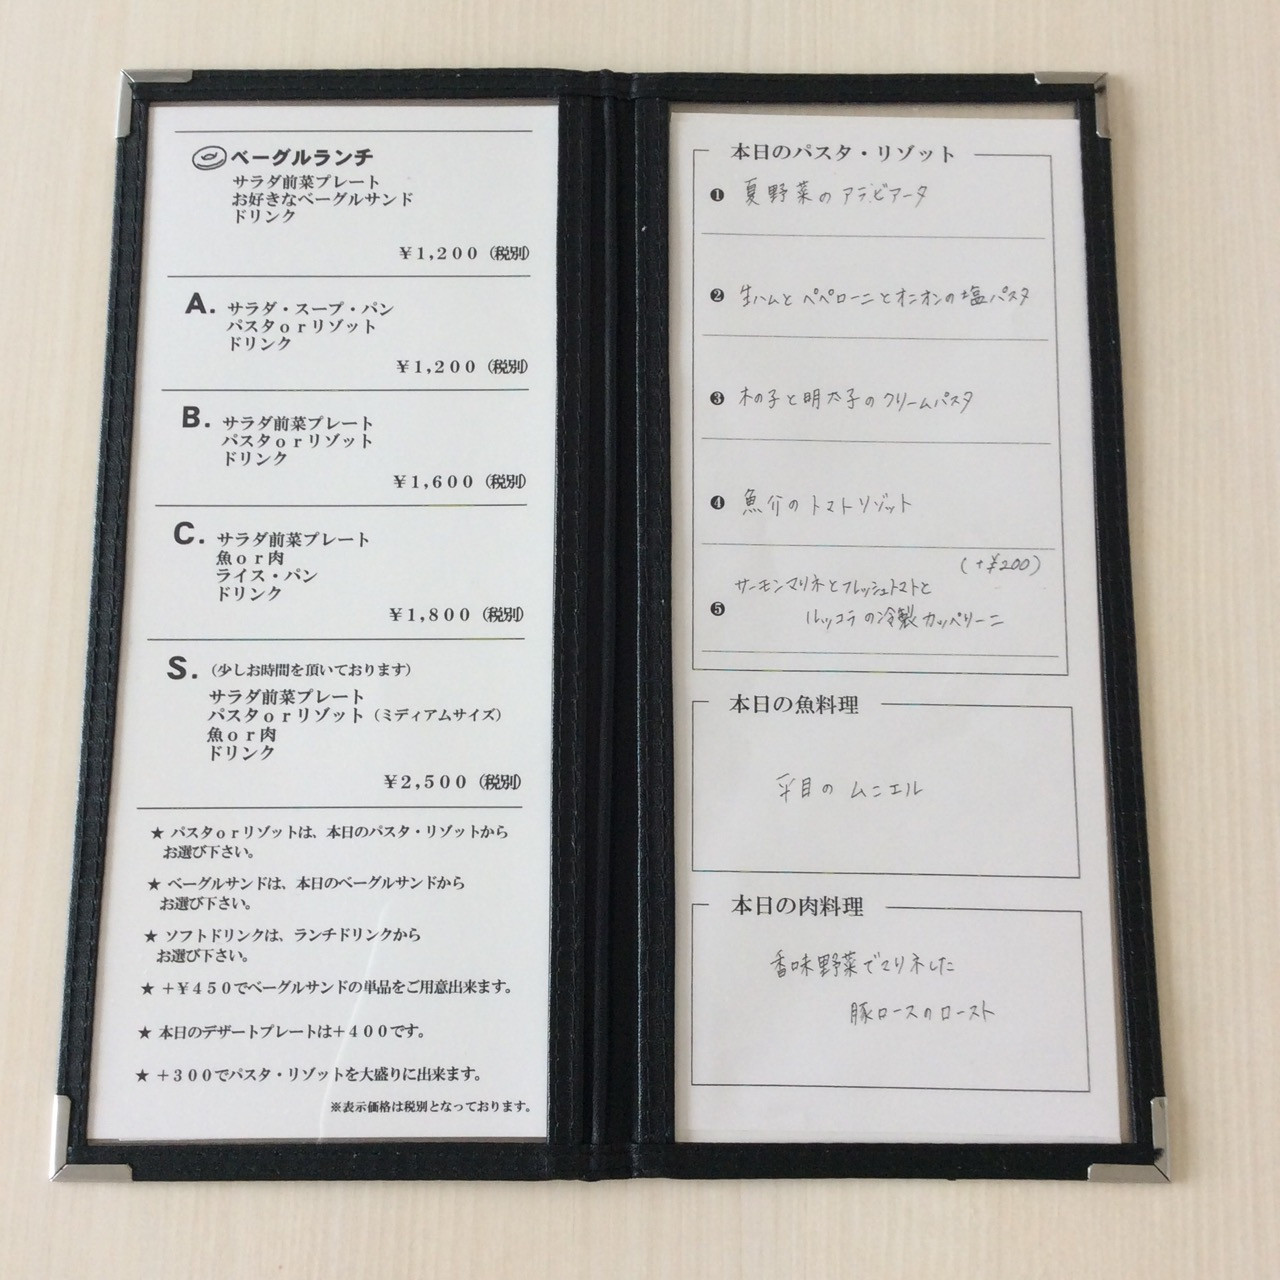 ベーグルランチ
サラダ前菜プレート
お好きなベーグルサンド
ドリンク
￥1,200（税別）
A.
サラダ・スープ・パン
パスタorリゾット
ドリンク
￥1,200（税別）
B.
サラダ前菜プレート
パスタorリゾット
ドリンク
￥1,600（税別）
C.
サラダ前菜プレート
魚or肉
ライス・パン
ドリンク
￥1,800（税別）
S.（少しお時間を頂いております）
サラダ前菜プレート
パスタorリゾット（ミディアムサイズ）
魚or肉
ドリンク
￥2,500（税別）
★ パスタorリゾットは、本日のパスタ・リゾットから
お選び下さい。
★ ベーグルサンドは、本日のベーグルサンドから
お選び下さい。
★ ソフトドリンクは、ランチドリンクから
お選び下さい。
★ ＋￥450でベーグルサンドの単品をご用意出来ます。
★ 本日のデザートプレートは＋400です。
★ ＋300でパスタ・リゾットを大盛りに出来ます。
※表示価格は税別となっております。
本日のパスタ・リゾット
❶ 夏野菜のアラビアータ
❷ 生ハムとペペローニとオニオンの塩パスタ
❸ 木の子と明太子のクリームパスタ
❹ 魚介のトマトリゾット
(+¥200)
❺ サーモンマリネとフレッシュトマトと
ルッコラの冷製カッペリーニ
本日の魚料理
平目のムニエル
本日の肉料理
香味野菜でマリネした
豚ロースのロースト